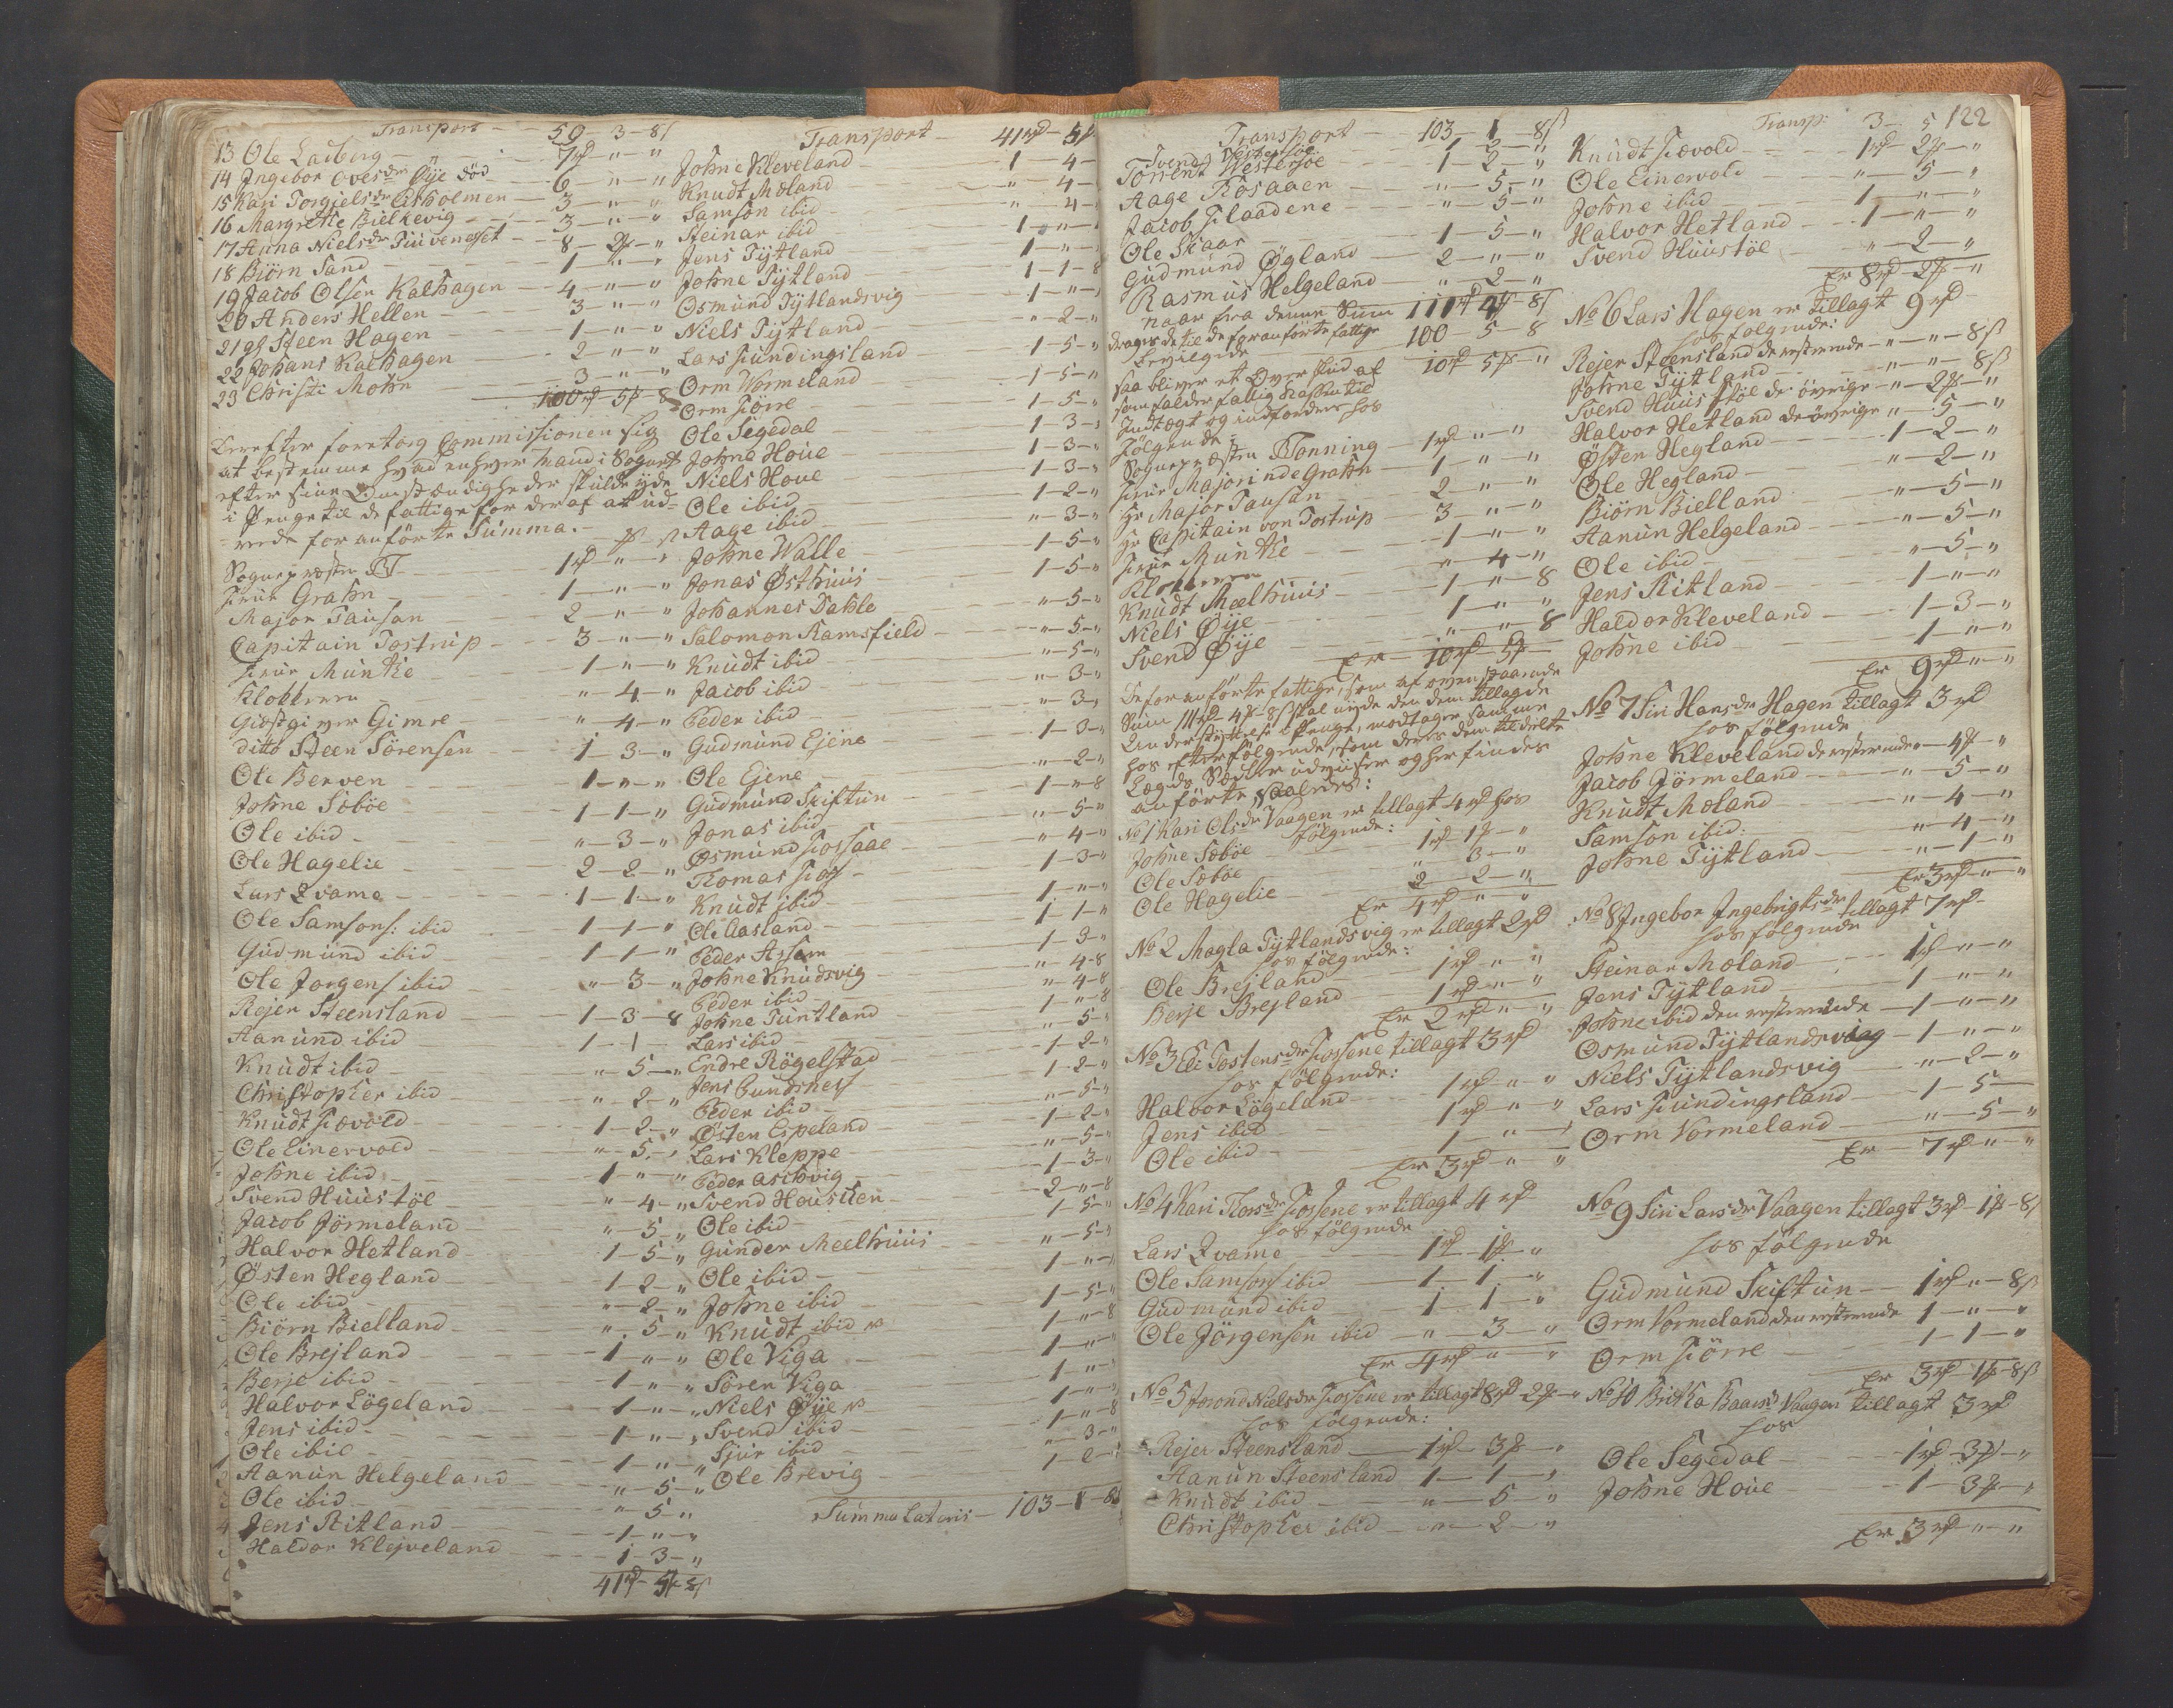 Transport — 59 — 3 — 8ß
13 Ole Ladberg — 7rd " "
14 Ingebor Ovesdr Øÿe död — 6 " "
15 Kari Torgielsdr Eisholmen — 3 " "
16 Margrethe Bielkevig — 3 " "
17 Anna Nielsdr Tiuveneset — 8 — 2 — "
18 Biörn Sand — 1 " "
19 Jacob Olsen Kalhagen — 4 " "
20 Anders Hellen — 3 " "
21 Steen Hagen — 1 " "
22 Johans Kalhagen — 2 " "
23 Christi Mohn — 3 " "
100rd — 5 — 8
Derefter foretog Commissionen sig
at bestemme hvad enhver Mand i Sognet
efter sine Omstændigheder skulde yde
i Penge til de fattige for deraf at ud-
rede foranførte Summa.
Sognepresten — 1rd " "
Frue Grahn — 1 " "
Major Tausan — 2 " "
Capitain Tostrup — 3 " "
Frue Muntke — 1 " "
Klokkeren — " 4 "
Giestgiver Gimre — " 4 "
ditto Steen Sörensen — 1 — 3 — "
Ole Berven — 1 " "
Johne Söböe — 1 — 1 — "
Ole ibid — " 3 — "
Ole Hagelie — 2 — 2 — "
Lars Qvame — 1 — 1 — "
Ole Samsons: ibid — 1 — 1 — "
Gudmund ibid — 1 — 1 — "
Ole Jorgens ibid — " 3 — "
Rejer Steensland — 1 — 3 — 8
Aanund ibid — 1 — 1 — "
Knudt ibid — " 5 — "
Christopher ibid — " 2 — "
Knudt Fævold — 1 — 2 — "
Ole Einervold — " 5 — "
Johne ibid — 1 " "
Svend Huustöl — " 4 — "
Jacob Jörmeland — " 5 — "
Halvor Hetland — 1 — 5 — "
Østen Hegland — 1 — 2 — "
Ole ibid — " 2 — "
Biörn Bielland — " 5 — "
Ole Brejland — 1 " "
Berje ibid — 1 " "
Halvor Lögeland — 1 " "
Jens ibid — 1 " "
Ole ibid — 1 " "
Aanun Helgeland — " 5 — "
Ole ibid — " 5 — "
Jens Ritland — 1 " "
Haldor Klejveland — 1 — 3 — "
41rd — 5 — 8ß
Transport — 41rd — 5
Johne Kleveland — 1 — 4 —
Knudt Moland — " 4 —
Samson ibid — " 4 —
Steinar ibid — 1 "
Jens Tÿtland — 1 "
Johne Tÿtland — 1 — 1 — 8
Osmund Tÿtlandsvig — 1 "
Niels Tÿtland — " 2 —
Lars Fundingsland — 1 — 5 —
Orm Vormeland — 1 — 5 —
Orm Fiörre — 1 — 5 —
Ole Segedal — 1 — 3 —
Johne Houe — 1 — 3 —
Niels Houe — 1 — 3 —
Ole ibid — 1 — 2 —
Aage ibid — " 3 —
Johne Walle — 1 — 5 —
Jonas Østhuus — 1 — 5 —
Johannes Dahle — " 5 —
Salomon Ramsfield — " 5 —
Knudt ibid — " 5 —
Jacob ibid — " 3 —
Peder ibid — " 3 —
Gudmund Ejene — 1 — 3 —
Ole Ejene — " 2 —
Gudmund Skiftun — 1 " 8
Jonas ibid — " 5 —
Osmund Fossaae — " 4 —
Thomas Foss — 1 — 3 —
Knudt ibid — 1 " "
Ole Aasland — 1 — 1 —
Peder Assem — 1 — 3 —
Johne Knudsvig — " 4 — 8
Peder ibid — " 4 — 8
Johne Tuntland — 1 " 8
Lars ibid — " 5 —
Endre Rögelstad — 1 — 2 —
Jens Gundsnes — 1 — 2 —
Peder ibid — " 5 —
Østen Espeland — 1 — 2 —
Lars Kleppe — " 5 —
Peder Aschvig — 1 — 3 —
Svend Housken — 2 " 8
Ole ibid — 1 — 5 —
Gunder Meelhuus — " 5 —
Ole ibid — 1 " "
Johne ibid — 1 — 5 —
Knudt ibid — 1 " 8
Ole Viga — 1 " "
Sören Viga — 1 " "
Niels Øÿe — 1 " "
Svend ibid — 1 " 8
Sjur ibid — " 3 —
Ole Brevig — 1 — 2 —
Summa Lateris — 103 — 1 — 8ß
Transport — 103 — 1 — 8ß
Svend Vestersöe — 1 — 2 — "
Torrent Westersöe — 1 — 2 — "
Aage Rosaaen — " 5 — "
Jacob Flaadene — " 5 — "
Ole Skaar — 1 — 5 — "
Gudmund Øgland — 2 " "
Rasmus Helgeland — " 2 — "
111rd 4 — 8ß
naar fra denne Sum
drages de til de foranførte fattige
bevilgede — 100 — 5 — 8
saa bliver et Overskud af — 10rd 5 "
som falder fattig Kassen til
Indtægt og indfordres hos
Følgende:
Sognepresten Rönning — 1rd " "
Frue Majorinde Grahn — 1 " "
Hr Major Tausan — 2 " "
Hr Capitain von Tostrup — 3 " "
Frue Muntke — 1 " "
Klokkeren — " 4 — "
Knudt Meelhuus — 1 " 8
Niels Øÿe — 1 " "
Svend Øÿe — " " 8
Er — 10rd — 5
De foranførte fattige, som af ovenstaaende
Sum 111rd 4 8ß skal nyde den dem tillagde
Understøttelse i Penge, modtager samme
hos efterfølgende, som deres dem tildelte
Lægds Sedler udviser og her findes
anförte saaledes:
No 1 Kari Olsdr Vaagen er tillagt 4rd hos
følgende:
Johne Söböe — 1rd 1 — "
Ole Söböe — " 3 — "
Ole Hagelie — 2 — 2 — "
Er 4rd " "
No 2 Magla Tÿtlandsvig er tillagt 2rd
hos følgende:
Ole Brejland — 1rd " "
Berje Brejland — 1rd " "
Er 2rd " "
No 3 Eli Tostensdr Fossene tillagt 3rd
hos følgende:
Halvor Lögeland — 1rd " "
Jens ibid — 1rd " "
Ole ibid — 1 " "
Er 3rd " "
No 4 Kari Thorsdr Fossene er tillagt 4rd
hos følgende
Lars Qvame — 1rd 1 — "
Ole Samsons ibid — 1 — 1 — "
Gudmund ibid — 1 — 1 — "
Ole Jörgensen ibid — " 3 — "
Er 4rd " "
No 5 Jorone Nielsdr Fossene er tillagt 8rd 2 — "
hos følgende:
Rejer Steensland — 1rd 3 — "
Aanun Steensland — 1 — 1 — "
Knudt ibid — " 5 — "
Christopher ibid — " 2 — "
122
Transp: 3 — 5
Knudt Fævold — 1rd 2 — "
Ole Einervold — " 5 — "
Johne ibid — 1 " "
Halvor Hetland — 1 " "
Svend Huustöl — " 2 — "
Er 8rd 2 — "
No 6 Lars Hagen er tillagt 9rd
hos følgende:
Rejer Steensland de resterende — " " 8ß
Johne Tÿtland — " " 8ß
Svend Huustöl de øvrige — " 2 — "
Halvor Hetland de øvrige — " 5 — "
Østen Hegland — 1 — 2 — "
Ole Hegland — " 2 — "
Biörn Bielland — " 5 — "
Aanun Helgeland — " 5 — "
Ole ibid — " 5 — "
Jens Ritland — 1 " "
Haldor Kleveland — 1 — 3 — "
Johne ibid — 1 " "
Er 9rd " "
No 7 Siri Hansdr Hagen tillagt 3rd
hos følgende
Johne Kleveland de resterende — 4 — "
Jacob Jörmeland — " 5 — "
Knudt Moland — " 4 — "
Samson ibid: — " 4 — "
Johne Tÿtland — " 1 — "
Er 3rd " "
No 8 Ingebor Ingebrigtsdr tillagt 7rd
hos følgende
Steinar Moland — 1rd " "
Jens Tÿtland — 1 " "
Johne ibid den resterende — 1 " "
Osmund Tÿtlandsviag — 1 " "
Niels Tÿtlandsvig — " 2 — "
Lars Fundingsland — 1 — 5 —
Orm Vormeland — " 5 — "
Er — 7rd " "
No 9 Siri Larsdr Vaagen tillagt 3rd — 1 — 8ß
hos følgende
Gudmund Skiftun — 1rd " 8ß
Orm Vormeland den resterende 1 " "
Orm Fiörre — 1 — 1 — "
Er 3rd 1 — 8ß
No 10 Britha Baarsdr Vaagen tillagt 3rd
hos
Ole Segedal — 1rd 3 — "
Johne Houe — 1 — 3 — "
Er 3rd " "